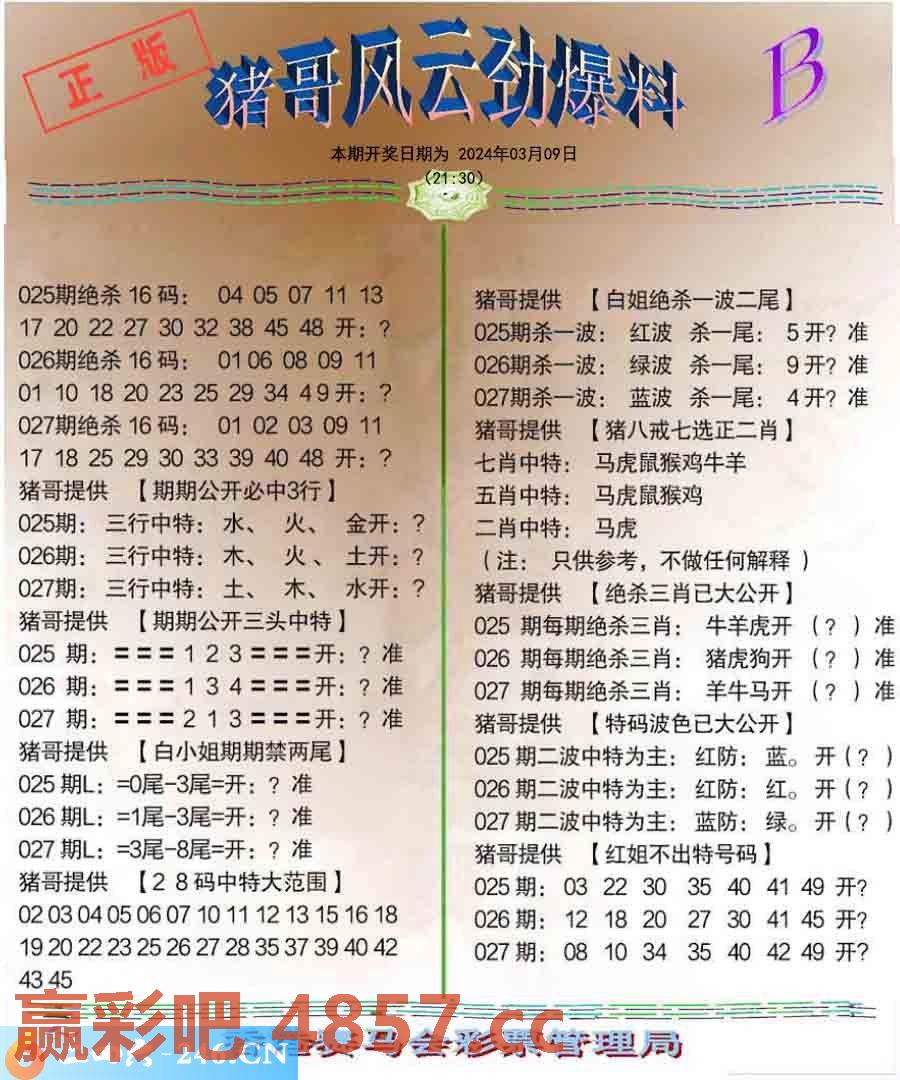 正版
猪哥风云劲爆料
B
本期开奖日期为 2024年03月09日
(21:30)
025期绝杀16码： 04 05 07 11 13
17 20 22 27 30 32 38 45 48 开：？
026期绝杀16码： 01 06 08 09 11
01 10 18 20 23 25 29 34 4 9 开：？
027期绝杀16码： 01 02 03 09 11
17 18 25 29 30 33 39 40 48 开：？
猪哥提供 【期期公开必中3行】
025期：三行中特：水、 火、 金开：？
026期：三行中特：木、 火、 土开：？
027期：三行中特：土、 木、 水开：？
猪哥提供 【期期公开三头中特】
025 期：=== 1 2 3 ===开：？准
026 期：=== 1 3 4 ===开：？准
027 期：=== 2 1 3 ===开：？准
猪哥提供 【白小姐期期禁两尾】
025 期L：=0尾-3尾=开：？准
026 期L：=1尾-3尾=开：？准
027 期L：=3尾-8尾=开：？准
猪哥提供 【２８码中特大范围】
02 03 04 05 06 07 10 11 12 13 15 16 18
19 20 22 23 25 26 27 28 35 37 39 40 42
43 45
猪哥提供 【白姐绝杀一波二尾】
025期杀一波： 红波 杀一尾： 5 开？准
026期杀一波： 绿波 杀一尾： 9 开？准
027期杀一波： 蓝波 杀一尾： 4 开？准
猪哥提供 【猪八戒七选正二肖】
七肖中特： 马虎鼠猴鸡牛羊
五肖中特： 马虎鼠猴鸡
二肖中特： 马虎
（注： 只供参考，不做任何解释 ）
猪哥提供 【绝杀三肖已大公开】
025 期每期绝杀三肖： 牛羊虎开 （？ ）准
026 期每期绝杀三肖： 猪虎狗开 （？ ）准
027 期每期绝杀三肖： 羊牛马开 （？ ）准
猪哥提供 【特码波色已大公开】
025 期二波中特为主： 红防： 蓝。 开（？ ）
026 期二波中特为主： 红防： 红。 开（？ ）
027 期二波中特为主： 蓝防： 绿。 开（？ ）
猪哥提供 【红姐不出特号码】
025 期： 03 22 30 35 40 41 49 开?
026 期： 12 18 20 27 30 41 45 开?
027 期： 08 10 34 35 40 42 49 开?
赢彩吧 4857.cc
马会彩票管理局